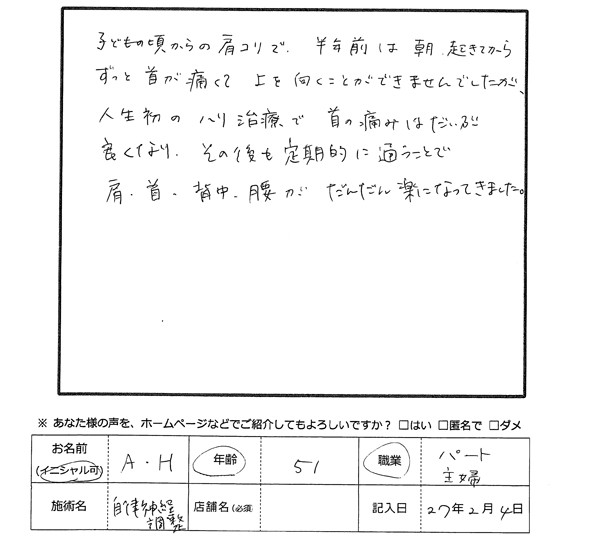 子どもの頃からの肩コリで、半年前は朝、起きてから
ずっと首が痛くて上を向くことができませんでしたが、
人生初のハリ治療で首の痛みはだいぶ
良くなり、その後も定期的に通うことで
肩・首・背中・腰がだんだん楽になってきました。
※ あなた様の声を、ホームページなどでご紹介してもよろしいですか？ □はい □匿名で □ダメ
お名前 (イニシャル可) A・H 年齢 51 職業 パート 主婦
施術名 自律神経 調整 店舗名(必須) 記入日 27年2月4日